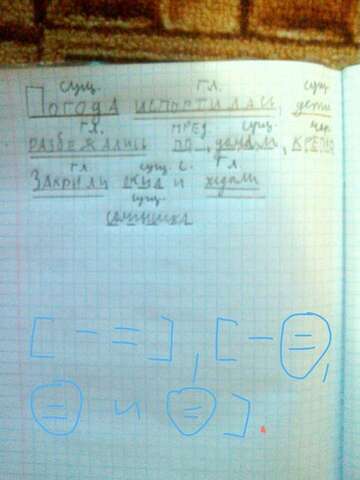 сущ. гл. сущ.
Погода испортилась, дети
гл. пред. сущ. нар.
разбежались по домам, крепко
гл. сущ. с. гл.
Закрыли окна и ждали
сущ.
солнышка
[ - = ], [ - =,
= и = ].